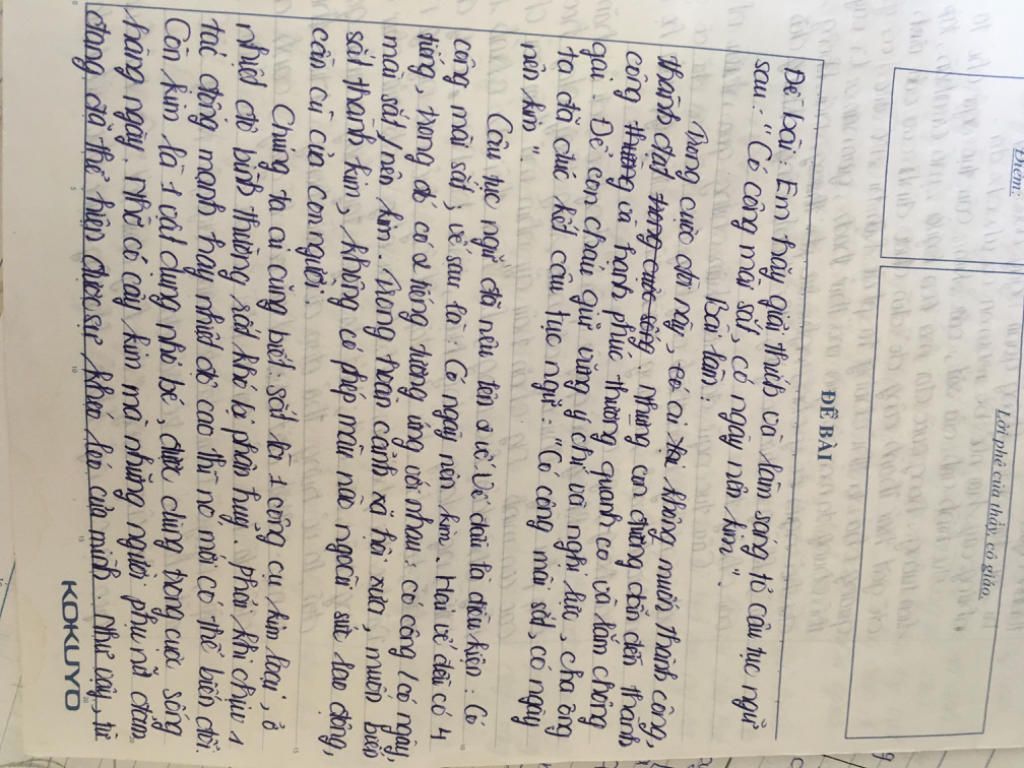 Điểm:
Lời phê của thầy, cô giáo
ĐỀ BÀI
Đề bài: Em hãy giải thích và làm sáng tỏ câu tục ngữ
sau: "Có công mài sắt, có ngày nên kim".
Bài làm:
Trong cuộc đời này, có ai lại không muốn thành công,
thành đạt trong cuộc sống. Nhưng con đường dẫn đến thành
công thường và hạnh phúc thường quanh co và lắm chông
gai. Để con cháu giữ vững ý chí và nghị lực, cha ông
ta đã đúc kết câu tục ngữ: "Có công mài sắt, có ngày
nên kim"
Câu tục ngữ đã nêu lên 2 vế: Vế đầu là điều kiện: Có
công mài sắt, vế sau là: Có ngày nên kim. Hai vế đều có 4
tiếng, trong đó có 2 tiếng tương ứng với nhau: có công / có ngày,
mài sắt / nên kim. Trong hoàn cảnh xã hội xưa, muốn biến
sắt thành kim, không có phép màu nào ngoài sức lao động,
cần cù của con người.
Chúng ta ai cũng biết: sắt là 1 công cụ kim loại, ở
nhiệt độ bình thường rất khó bị phân huỷ. phải khi chịu 1
tác động mạnh hay nhiệt độ cao thì nó mới có thể biến đổi.
Còn kim là 1 vật dụng nhỏ bé, được dùng trong cuộc sống
hàng ngày. Nhờ có cây kim mà những người phụ nữ đảm
đang đã thể hiện được sự khéo léo của mình. Như vậy, từ
KOKUYO